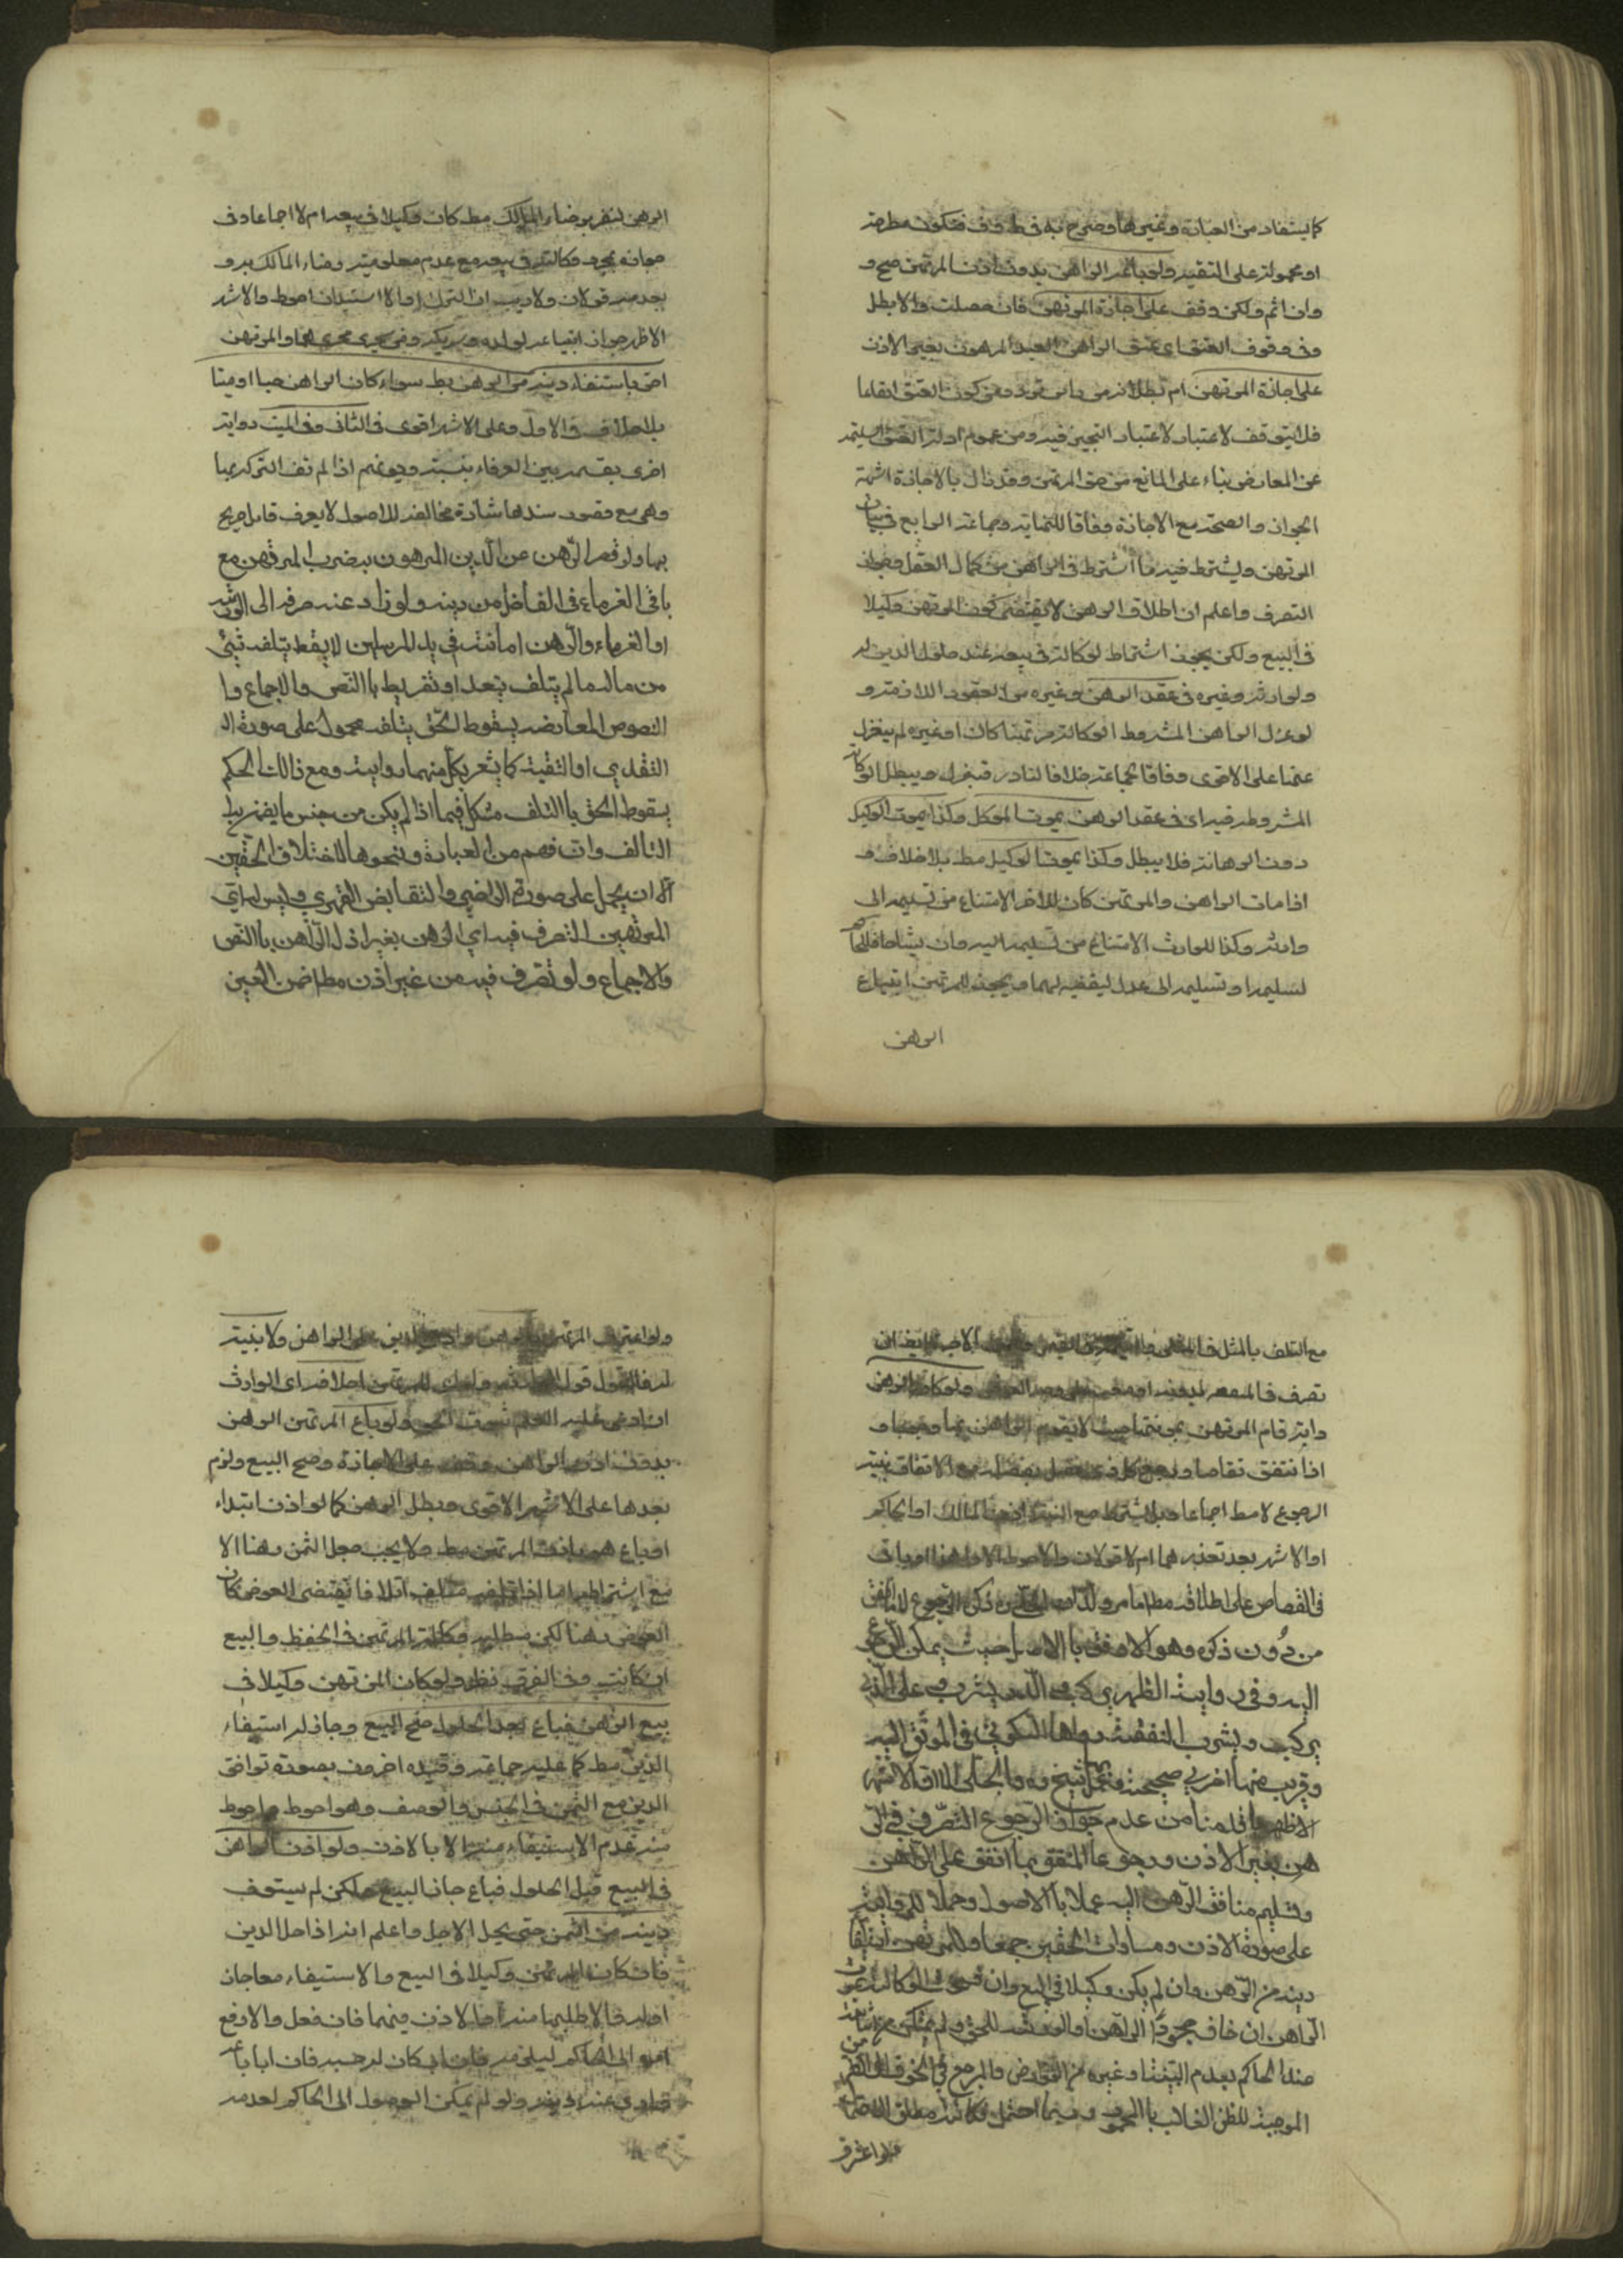 كما يستفاد من العبارة وغيرها وصرح به في
او محمولة على التقية ولو باع الراهن بدون اذن المرتهن صح و
وان اثم ولكن وقف على اجازة المرتهن فان حصلت والا بطل
وفي وقوف العتق اى عتق الراهن العبد المرهون بغير الاذن
على اجازة المرتهن ام بطلانه من راس تردد من كون العتق ايقاعا
فلا يتوقف لاعتبار التنجيز فيه ومن عموم ادلة العتق السليمة
عن المعارض بناء على المانع من حق المرتهن وقد زال بالاجازة اشهره
الجواز والصحة مع الاجازة وفاقا للنهاية وجماعة الرابع في بيان
المرتهن ويشترط فيه ما اشترط في الراهن من كمال العقل وجواز
التصرف واعلم ان اطلاق الرهن لا يقتضى كون المرتهن وكيلا
في البيع ولكن يجوز اشتراط الوكالة في بيعه عند حلول الدين له
ولوارثه وغيره في عقد الرهن وغيره من العقود اللازمة و
لو عزل الراهن المشروط الوكالة مرتهنا كان او غيره لم ينعزل
على الاقوى وفاقا لجماعة خلافا لنادر وتبطل الوكالة
المشروطة فيه اى في عقد الرهن بموت الموكل وكذا بموت الوكيل
دون الرهانة فلا يبطل وكذا بموت الوكيل مط بلا خلاف و
اذا مات الراهن والمرتهن كان للاخر الامتناع من تسليمه الى
وارثه وكذا للوارث الامتناع من تسليمه اليه فان تشاحا فللحاكم
تسليمه او تسليمه الى عدل ليقبضه لهما ويجوز للمرتهن ابتياع
الرهن
الرهن لنفسه برضاء المالك مط كان وكيلا في بيعه ام لا اجماعا وفي
جوازه بمجرد وكالته في بيعه مع عدم معلومية رضاء المالك به و
بعدمه قولان ولا ريب ان الترك او لا استيذان احوط والاشهر
الاظهر جواز ابتياعه لولده وشريكه ومن يجرى مجراهما والمرتهن
احق باستيفاء دينه من الرهن مط سواء كان الراهن حيا او ميتا
بلا خلاف في الاول وعلى الاشهر الاقوى في الثانى وفي الميت رواية
اخرى يقسم بين الغرماء بنسبة ديونهم اذا لم تف التركة بها
وهى مع قصور سندها شاذة مخالفة للاصول لا يعرف قائل صريح
بها ولو قصر الرهن عن الدين المرهون به ضرب المرتهن مع
باقي الغرماء في الفاضل من دينه ولو زاد عنه صرف الى الورثة
او الغرماء والرهن امانة في يد المرتهن لا يسقط بتلفه شيئ
من ماله ما لم يتلف بتعد او تفريط بالنص والاجماع وا
النصوص المعارضة بسقوط الحق بتلفه محمول على صورة ا
التعدي او التقية كما يشعر بكل منهما رواية ومع ذالك الحكم
بسقوط الحق بالتلف مشكل فيما اذا لم يكن من جنس ما يضمن به
التالف وان فهم من العبارة ونحوها لاختلاف الحقين
الا ان يحمل على صورة التراضي والتقابض القهري وليس له اي
المرتهن التصرف فيه اي الرهن بغير اذن الراهن بالنص
والاجماع ولو تصرف فيه من غير اذن مط ضمن العين
مع التلف بالمثل في المثلى والقيمة في القيمى
دابة قام المرتهن بمؤنتها حيث لا يقوم الراهن بها وجوبا و
اذا تنفق تقاصا ورجع كل ذى فضل بفضله مع الاتفاق بنية
الرجوع لا مط اجماعا وهل يشترط مع النية اذن المالك او الحاكم
او الاشهر بعد تعذرهما ام لا قولان والاحوط الاول
في القصاص على اطلاقه مط ما مر ولذا ذكر الرجوع للنافق
من دون ذكره وهو الاوفق بالاصل حيث يمكن الرجوع
اليه وفي رواية الظهر يركب والدر يشرب وعلى الذي
يركب ويشرب النفقة رواها السكوني في الموثق اليه
وقريب منها اخرى صحيحة وبهما الشيخ وه والحلى الا ان الاشهر
الاظهر ما قدمنا من عدم جواز الرجوع التصرف في الر
هن بغير الاذن ورجوع المنفق بما انفق على الراهن
وتسليم منافع الرهن اليه عملا بالاصول وحملا للرواية
على صورة الاذن ومساوات الحقين جمعا وللمرتهن استيفاء
دينه من الرهن وان لم يكن وكيلا في البيع
الراهن ان خاف جحود الراهن او الورثة للحق ولم يتمكن من اثباته
عند الحاكم بعدم البينة او غيره من العوارض والمرجع في الخوف الى
الموجبة للظن الغالب بالجحود وربما احتمل
ولو اعترف
ولو اعترف المرتهن بالرهن وادعى الدين على الراهن ولا بينة
له فالقول قول الوارث وله احلافه اى الوارث
ان ادعى عليه العلم بثبوت الحق ولو باع المرتهن الرهن
بدون اذن الراهن وقف على الاجازة وصح البيع ولزم
بعدها على الاشهر الاقوى وبطل الرهن كما لو اذن ابتداء
او باع هو باذن المرتهن مط ولا يجب جعل الثمن رهنا الا
مع اشتراطه اما اذا اتلفه متلف اتلافا يقتضى العوض كان
العوض رهنا لكن يبطل وكالة المرتهن في الحفظ والبيع
ان كانت وفي الفرق نظر ولو كان المرتهن وكيلا في
بيع الرهن فباع بعد الحلول صح البيع وجاز له استيفاء
الدين مط كما عليه جماعة وقيده اخرون بصورة توافق
الدين مع الثمن في الجنس والوصف وهو احوط واحوط
منه عدم الاستيفاء منه الا بالاذن ولو اذن الراهن
في البيع قبل الحلول فباع جاز البيع ولكن لم يستوف
دينه من الثمن حتى يحل الاجل واعلم انه اذا حل الدين
فان كان المرتهن وكيلا في البيع والاستيفاء معا جاز
له والا طلبهما منه او الاذن فيهما فان فعل والا رفع
امره الى الحاكم ليلزمه فان ابى كان له حبسه
دينه ولو لم يمكن الوصول الى الحاكم لعدمه